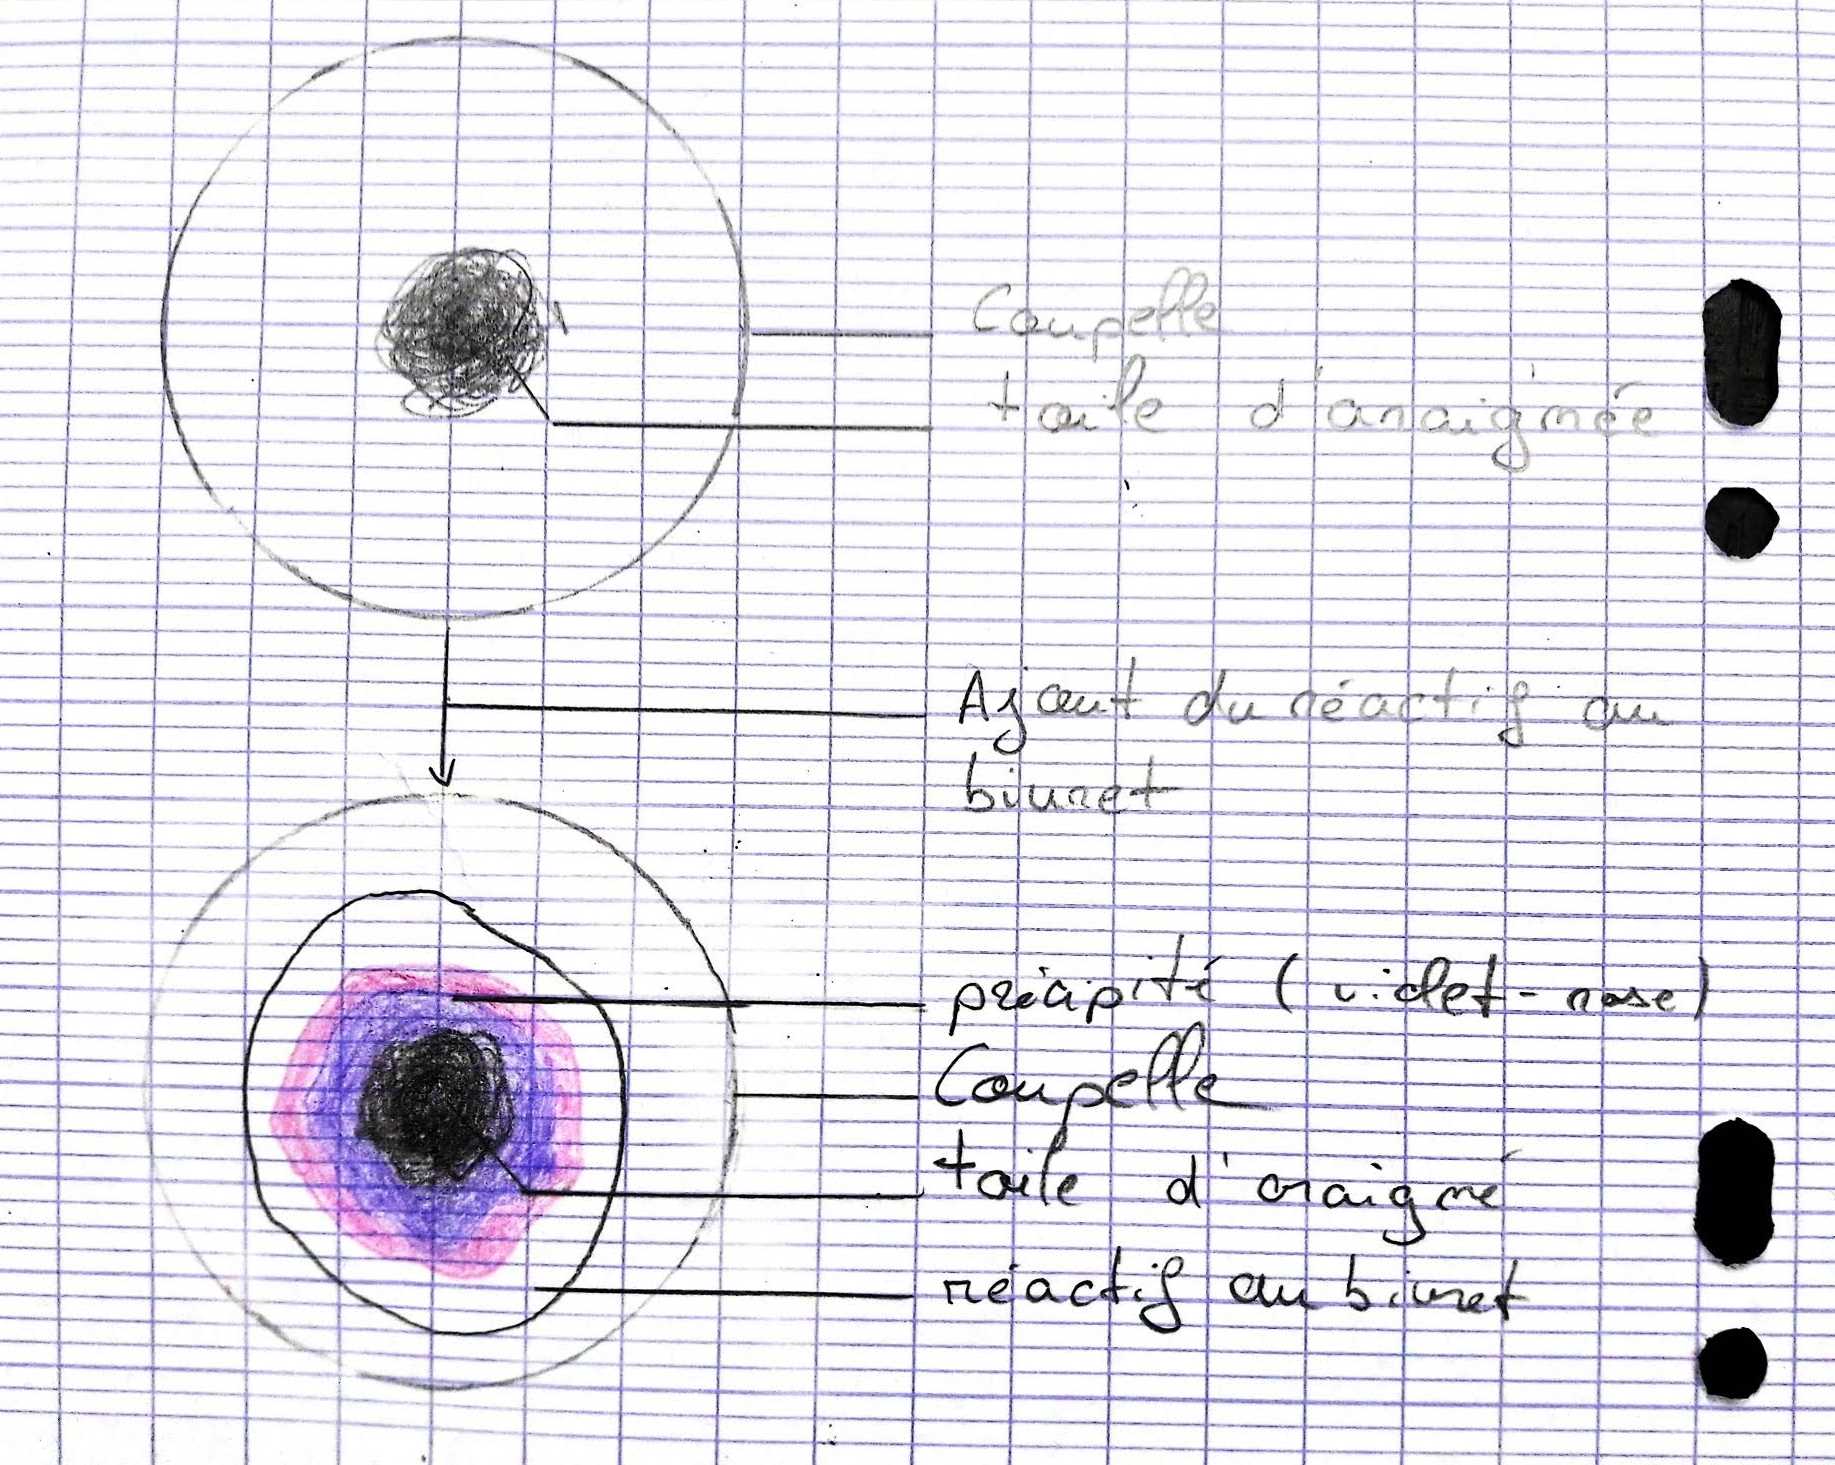 Coupelle
toile d'araignée
Ajout du réactif au
biuret
précipité (violet-rose)
Coupelle
toile d'araigné
réactif au biuret